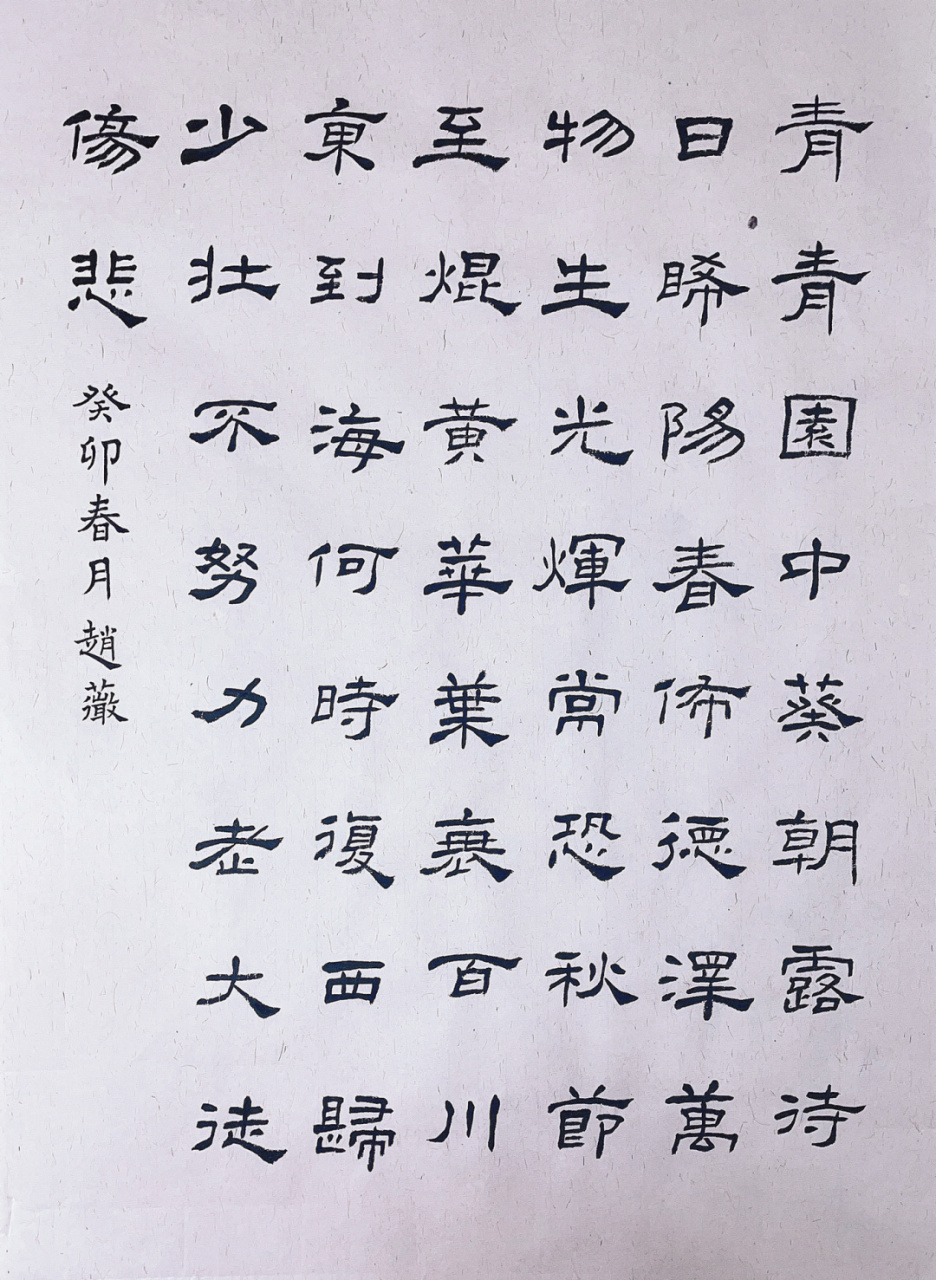 青青園中葵朝露待
日睎陽春佈德澤萬
物生光煇常恐秋節
至焜黃華葉衰百川
東到海何時復西歸
少壯不努力老大徒
傷悲
癸卯春月趙薇